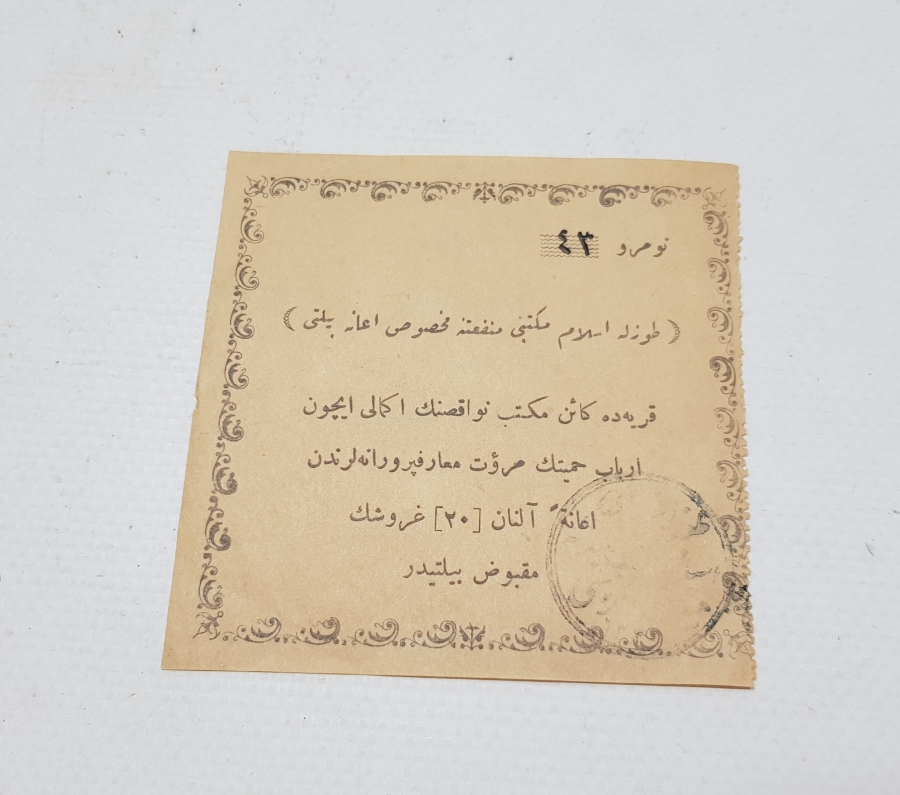 نومرو ٤٣
(طوزله اسلام مكتبنى منفعتنه مخصوص اعانه بيلتى)
قريه‌ده كائن مكتب نواقصنك اكمالى ايچون
ارباب حميتك مروٴت معارفپرورانه‌لرندن
اعانةً آلنان [٢٠] غروشك
مقبوض بيلتيدر